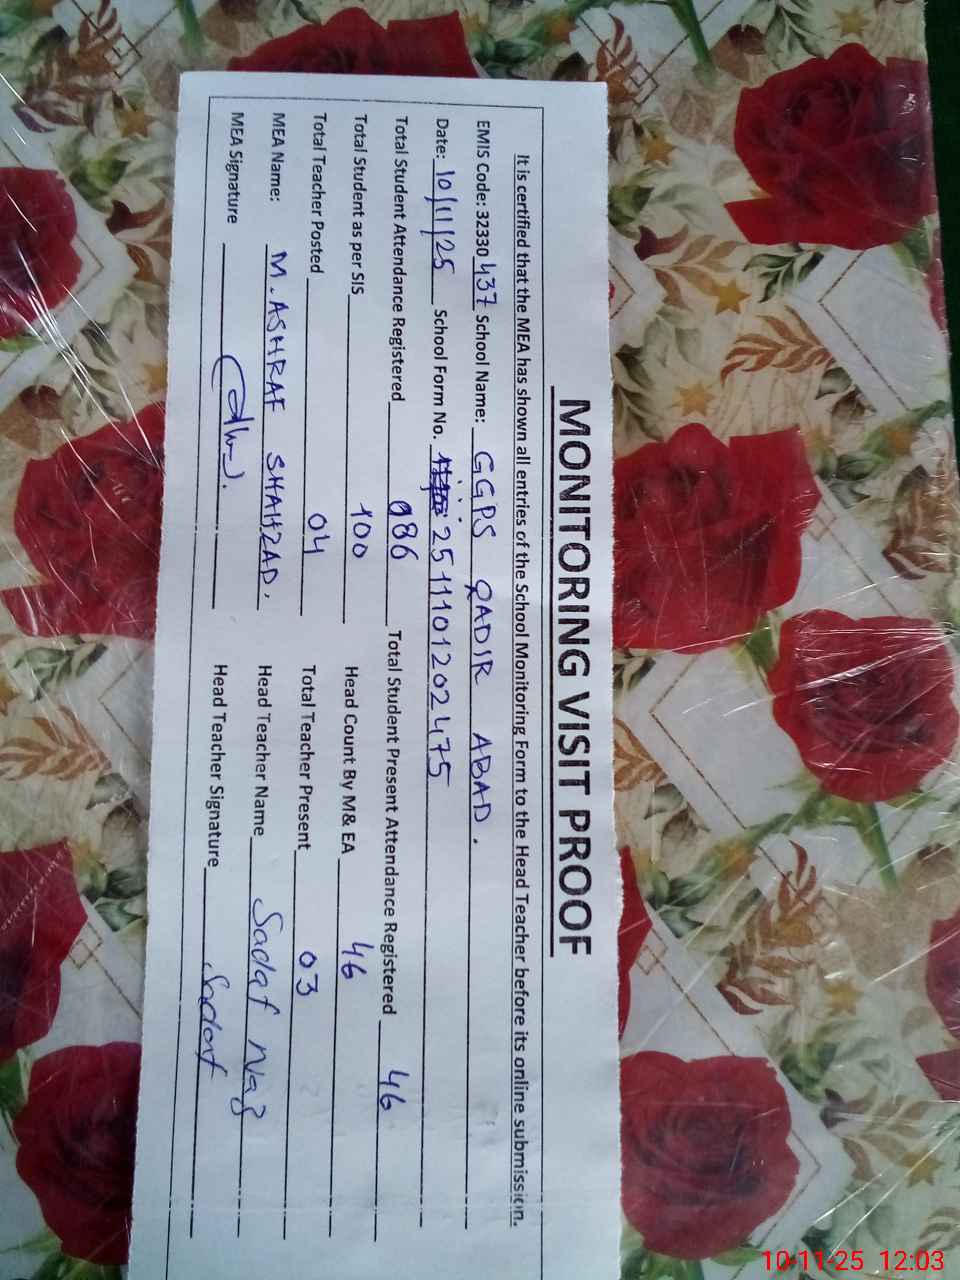 MONITORING VISIT PROOF
It is certified that the MEA has shown all entries of the School Monitoring Form to the Head Teacher before its online submission.
EMIS Code: 32330437 School Name: GGPS QADIR ABAD.
Date: 10/11/25 School Form No. 2511101202475
Total Student Attendance Registered 086 Total Student Present Attendance Registered 46
Total Student as per SIS 100 Head Count By M& EA 46
Total Teacher Posted 04 Total Teacher Present 03
MEA Name: M. ASHRAF SHAHZAD. Head Teacher Name Sadaf Naz
MEA Signature Head Teacher Signature Sadaf
10-11-25 12:03